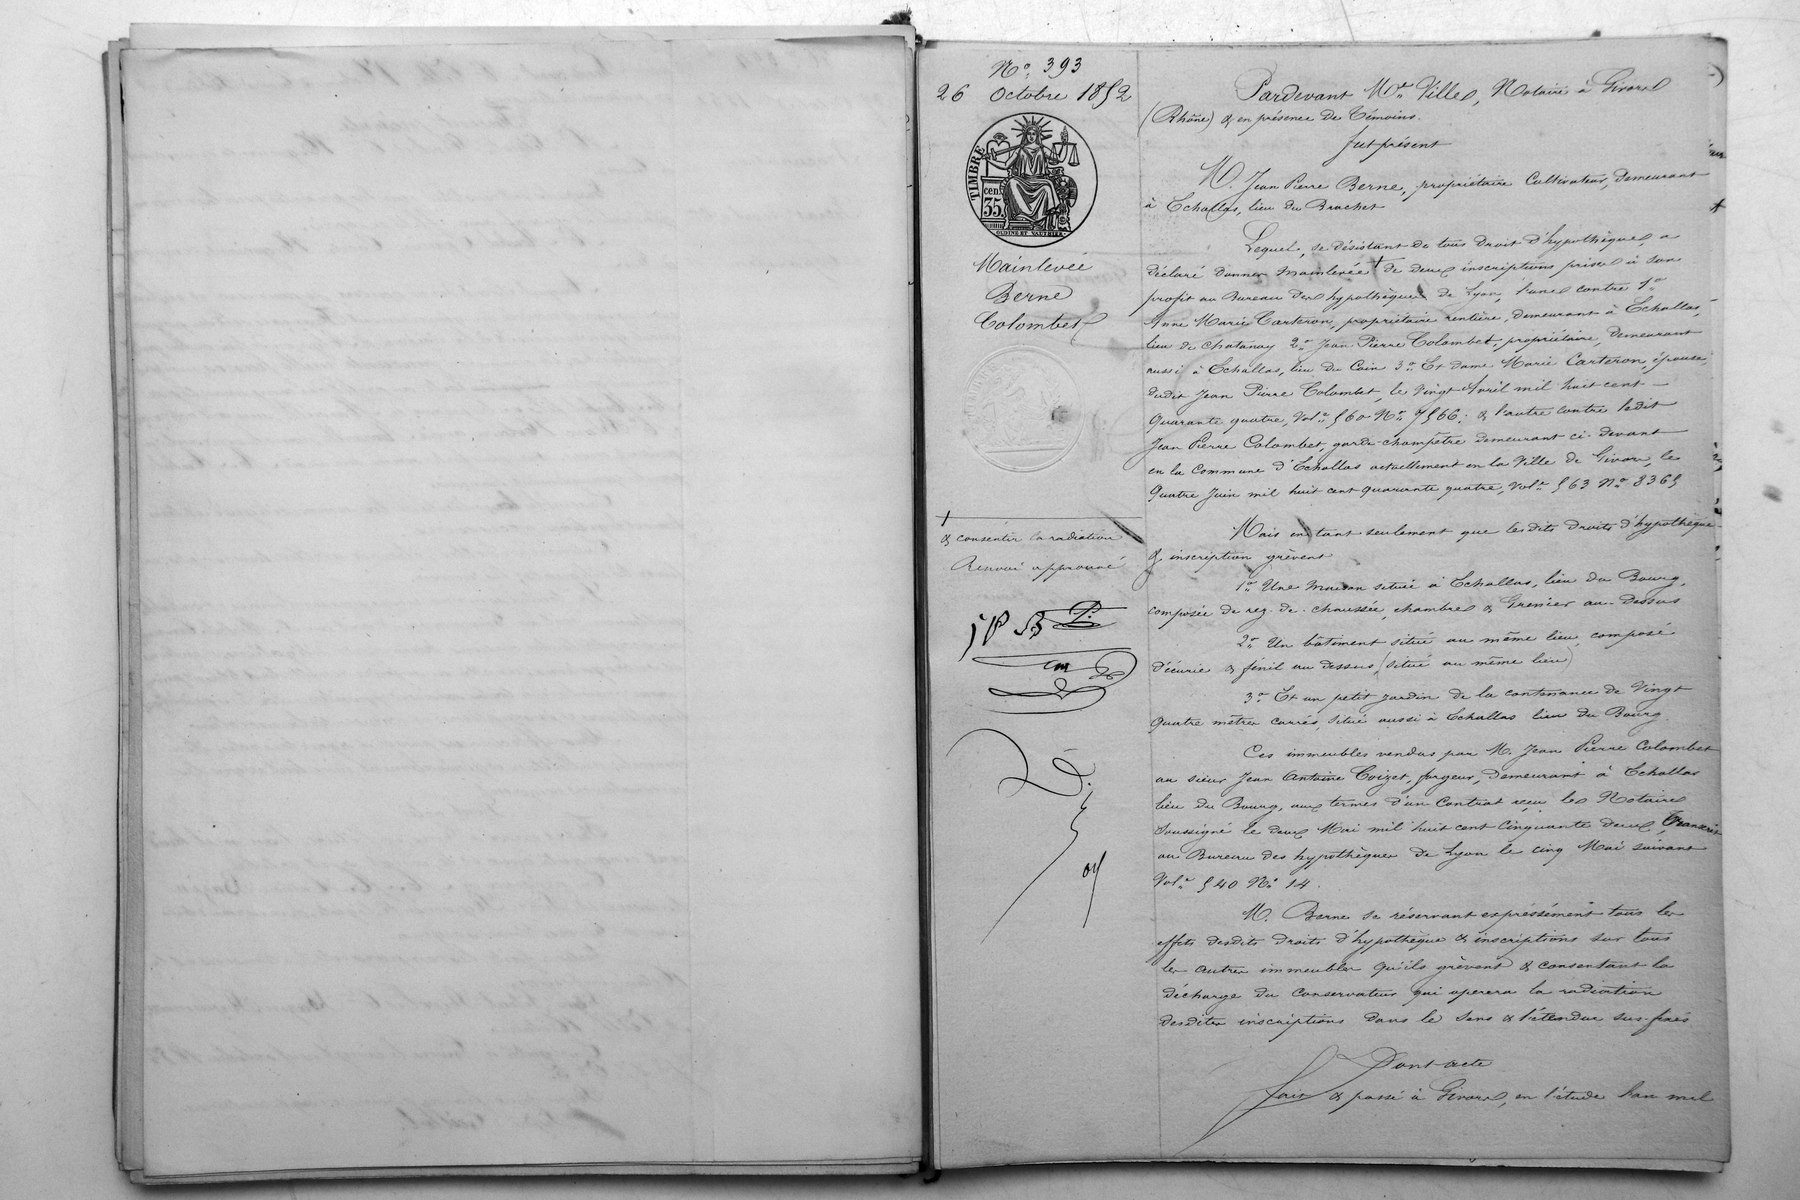 N° 393
26 Octobre 1852
TIMBRE
35 cen.
Mainlevée
Berne
Colombet
& consentir la radiation
Renvoi approuvé
Pardevant Me Ville, Notaire à Givors
(Rhône) & en présence de Témoins.
fut présent
M. Jean Pierre Berne, propriétaire Cultivateur, demeurant
à Echallas, lieu du Brachet
Lequel, se désistant de tous droits d'hypothèque, a
déclaré donner mainlevée + de deux inscriptions prises à son
profit au Bureau des hypothèques de Lyon, l'une contre 1°
Anne Marie Carteron, propriétaire rentière, demeurant à Echallas,
lieu de Chatanay 2° Jean Pierre Colombet, propriétaire, demeurant
aussi à Echallas, lieu du Coin 3° Et dame Marie Carteron, épouse
dudit Jean Pierre Colombet, le Vingt Avril mil huit cent
Quarante quatre, Vole 560 N° 7566; & l'autre contre ledit
Jean Pierre Colombet, garde-champêtre demeurant ci-devant
en la Commune d'Echallas actuellement en la Ville de Givors, le
Quatre Juin mil huit cent quarante quatre, Vole 563 N° 8365
Mais en tant seulement que lesdits droits d'hypothèque
& inscription grèvent
1° Une maison située à Echallas, lieu du Bourg,
composée de rez-de-chaussée, chambres & Grenier au-dessus
2° Un bâtiment situé au même lieu composé
d'écurie & fénil au dessus, (situé au même lieu)
3° Et un petit jardin de la contenance de Vingt
Quatre mètres carrés, situé aussi à Echallas lieu du Bourg.
Ces immeubles vendus par M. Jean Pierre Colombet
au sieur Jean Antoine Coizet, forgeur, demeurant à Echallas
lieu du Bourg, aux termes d'un Contrat reçu le Notaire
soussigné le deux Mai mil huit cent Cinquante deux, Transcrit
au Bureau des hypothèques de Lyon le cinq Mai suivant
Vole 540 N° 14.
M. Berne se réservant expréssément tous les
effets desdits droits d'hypothèque & inscriptions sur tous
les autres immeubles qu'ils grèvent & consentant la
décharge du Conservateur qui opérera la radiation
desdites inscriptions dans le sens & l'étendue sus-fixés
Dont acte
fait & passé à Givors, en l'étude l'an mil